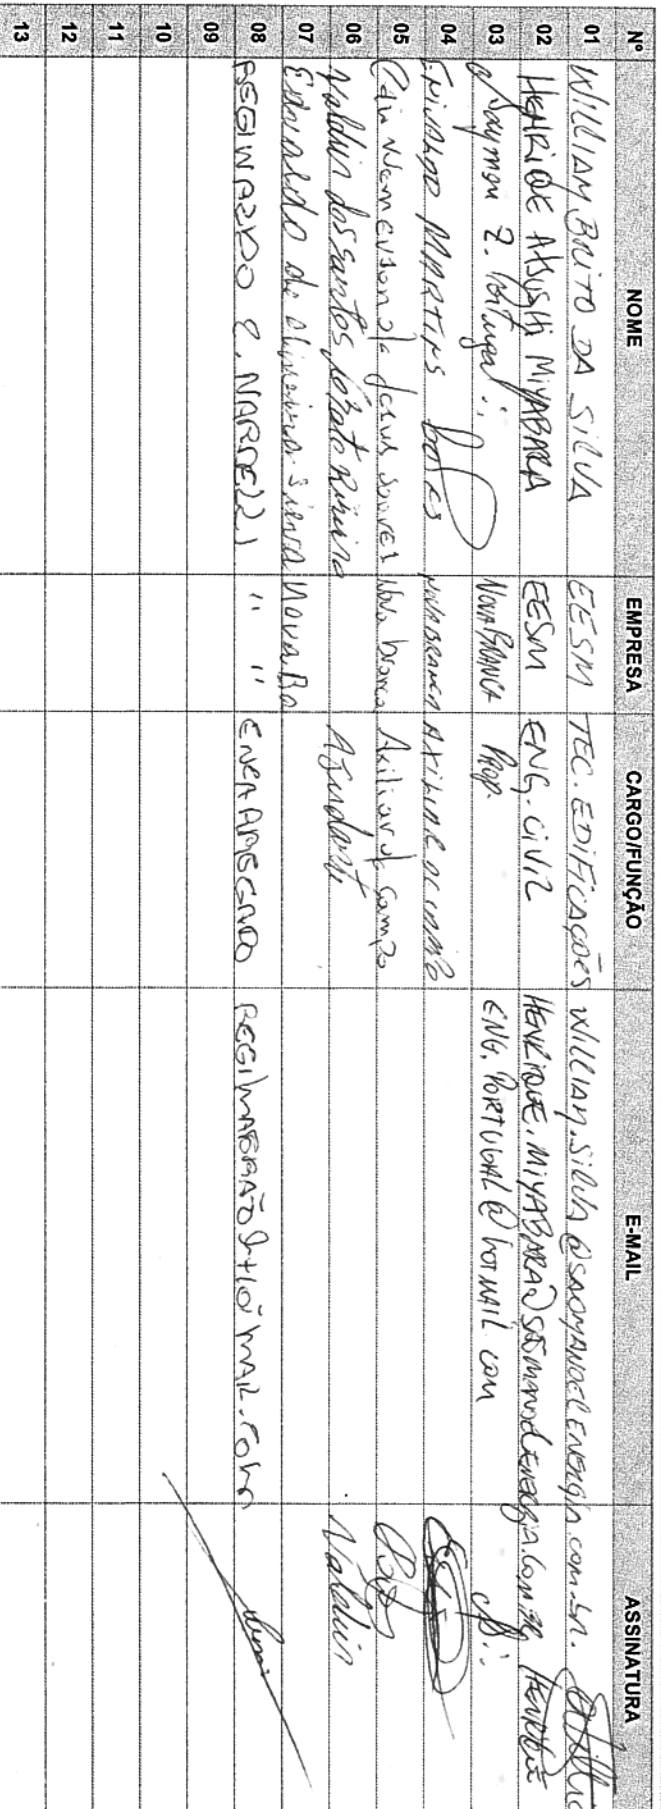 Nº NOME EMPRESA CARGO/FUNÇÃO E-MAIL ASSINATURA
01 WILLIAM BRITO DA SILVA EESM TEC. EDIFICAÇÕES WILLIAM.SILVA@SAOMANOELENERGIA.COM.BR.
02 HENRIQUE ATSUSHI MIYABARA EESM ENG. CIVIL HENRIQUE.MIYABARA@SAOMANOELENERGIA.COM.BR HENRIQUE
03 Z. Portugal NOVA BRANCA PROP. ENG.PORTUGAL@HOTMAIL.COM
04 MARTINS NOVA BRANCA
05 de Jesus Soares Nova branca Axiliar de Campo
06 Valdir dos Santos Lobato Ribeiro Ajudante Valdir
07 de Nova Br
08 REGINALDO P. NARDELLI " " ENCARREGADO
09
10
11
12
13